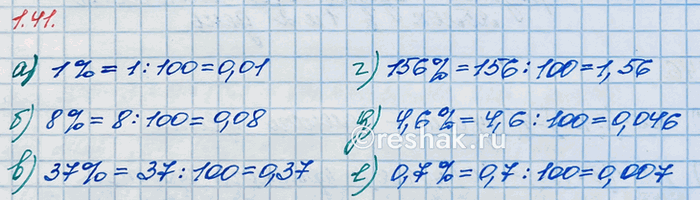 1.41.
а) 1% = 1 : 100 = 0,01
б) 8% = 8 : 100 = 0,08
в) 37% = 37 : 100 = 0,37
г) 156% = 156 : 100 = 1,56
д) 4,6% = 4,6 : 100 = 0,046
е) 0,7% = 0,7 : 100 = 0,007
reshak.ru